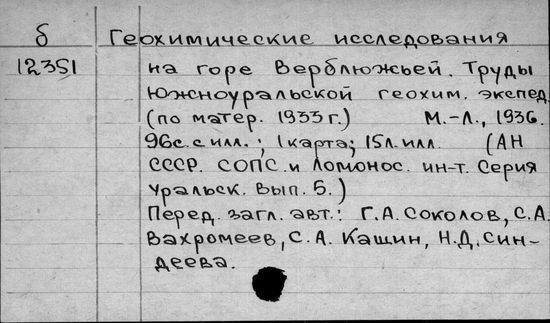 б Геохимические исследования
12351 на горе Верблюжьей. Труды
Южноуральской геохим. экспед.
(по матер. 1933 г.) М.-Л., 1936.
96с. с илл.; 1 карта; 15л. илл. (АН
СССР. СОПС. и Ломонос. ин-т. Серия
Уральск. Вып. 5.)
Перед. загл. авт.: Г.А. Соколов, С.А.
Вахромеев, С.А. Кашин, Н.Д. Син-
деева.